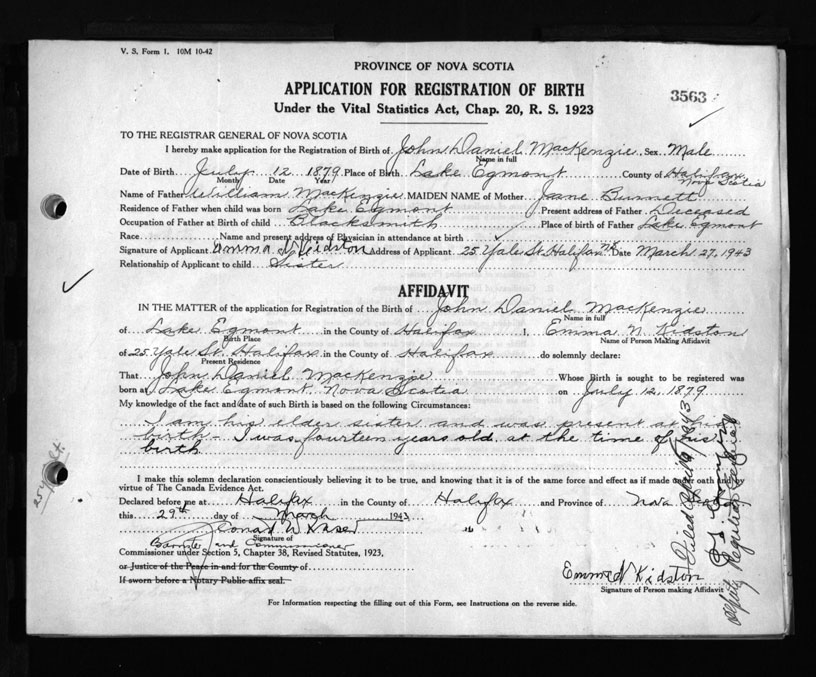 V. S. Form 1. 10M 10-42
PROVINCE OF NOVA SCOTIA
APPLICATION FOR REGISTRATION OF BIRTH
3563
Under the Vital Statistics Act, Chap. 20, R. S. 1923
TO THE REGISTRAR GENERAL OF NOVA SCOTIA
I hereby make application for the Registration of Birth of John Daniel MacKenzie Sex Male
Name in full
Date of Birth July 12 1879 Place of Birth Lake Egmont County of Halifax
Month Date Year Nova Scotia
Name of Father William MacKenzie MAIDEN NAME of Mother Jane Burnett
Residence of Father when child was born Lake Egmont Present address of Father Deceased
Occupation of Father at Birth of child Blacksmith Place of birth of Father Lake Egmont
Race Name and present address of Physician in attendance at birth
Signature of Applicant Emma N Kidston Address of Applicant 25 Yale St. Halifax N.S. Date March 27, 1943
Relationship of Applicant to child Sister
AFFIDAVIT
IN THE MATTER of the application for Registration of the Birth of John Daniel MacKenzie
Name in full
of Lake Egmont in the County of Halifax I, Emma N. Kidston
Birth Place Name of Person Making Affidavit
of 25 Yale St. Halifax in the County of Halifax do solemnly declare:
Present Residence
That John Daniel MacKenzie Whose Birth is sought to be registered was
born at Lake Egmont Nova Scotia on July 12, 1879
My knowledge of the fact and date of such Birth is based on the following Circumstances:
I am his elder sister and was present at his
birth - I was fourteen years old at the time of his
birth
I make this solemn declaration conscientiously believing it to be true, and knowing that it is of the same force and effect as if made under oath and by
virtue of The Canada Evidence Act.
Declared before me at Halifax in the County of Halifax and Province of Nova Scotia
this 29th day of March 1943
Signature of
Barrister and Commissioner
Commissioner under Section 5, Chapter 38, Revised Statutes, 1923,
or Justice of the Peace in and for the County of
If sworn before a Notary Public affix seal.
Emma N Kidston
Signature of Person making Affidavit
For Information respecting the filling out of this Form, see Instructions on the reverse side.
Deputy Registrar